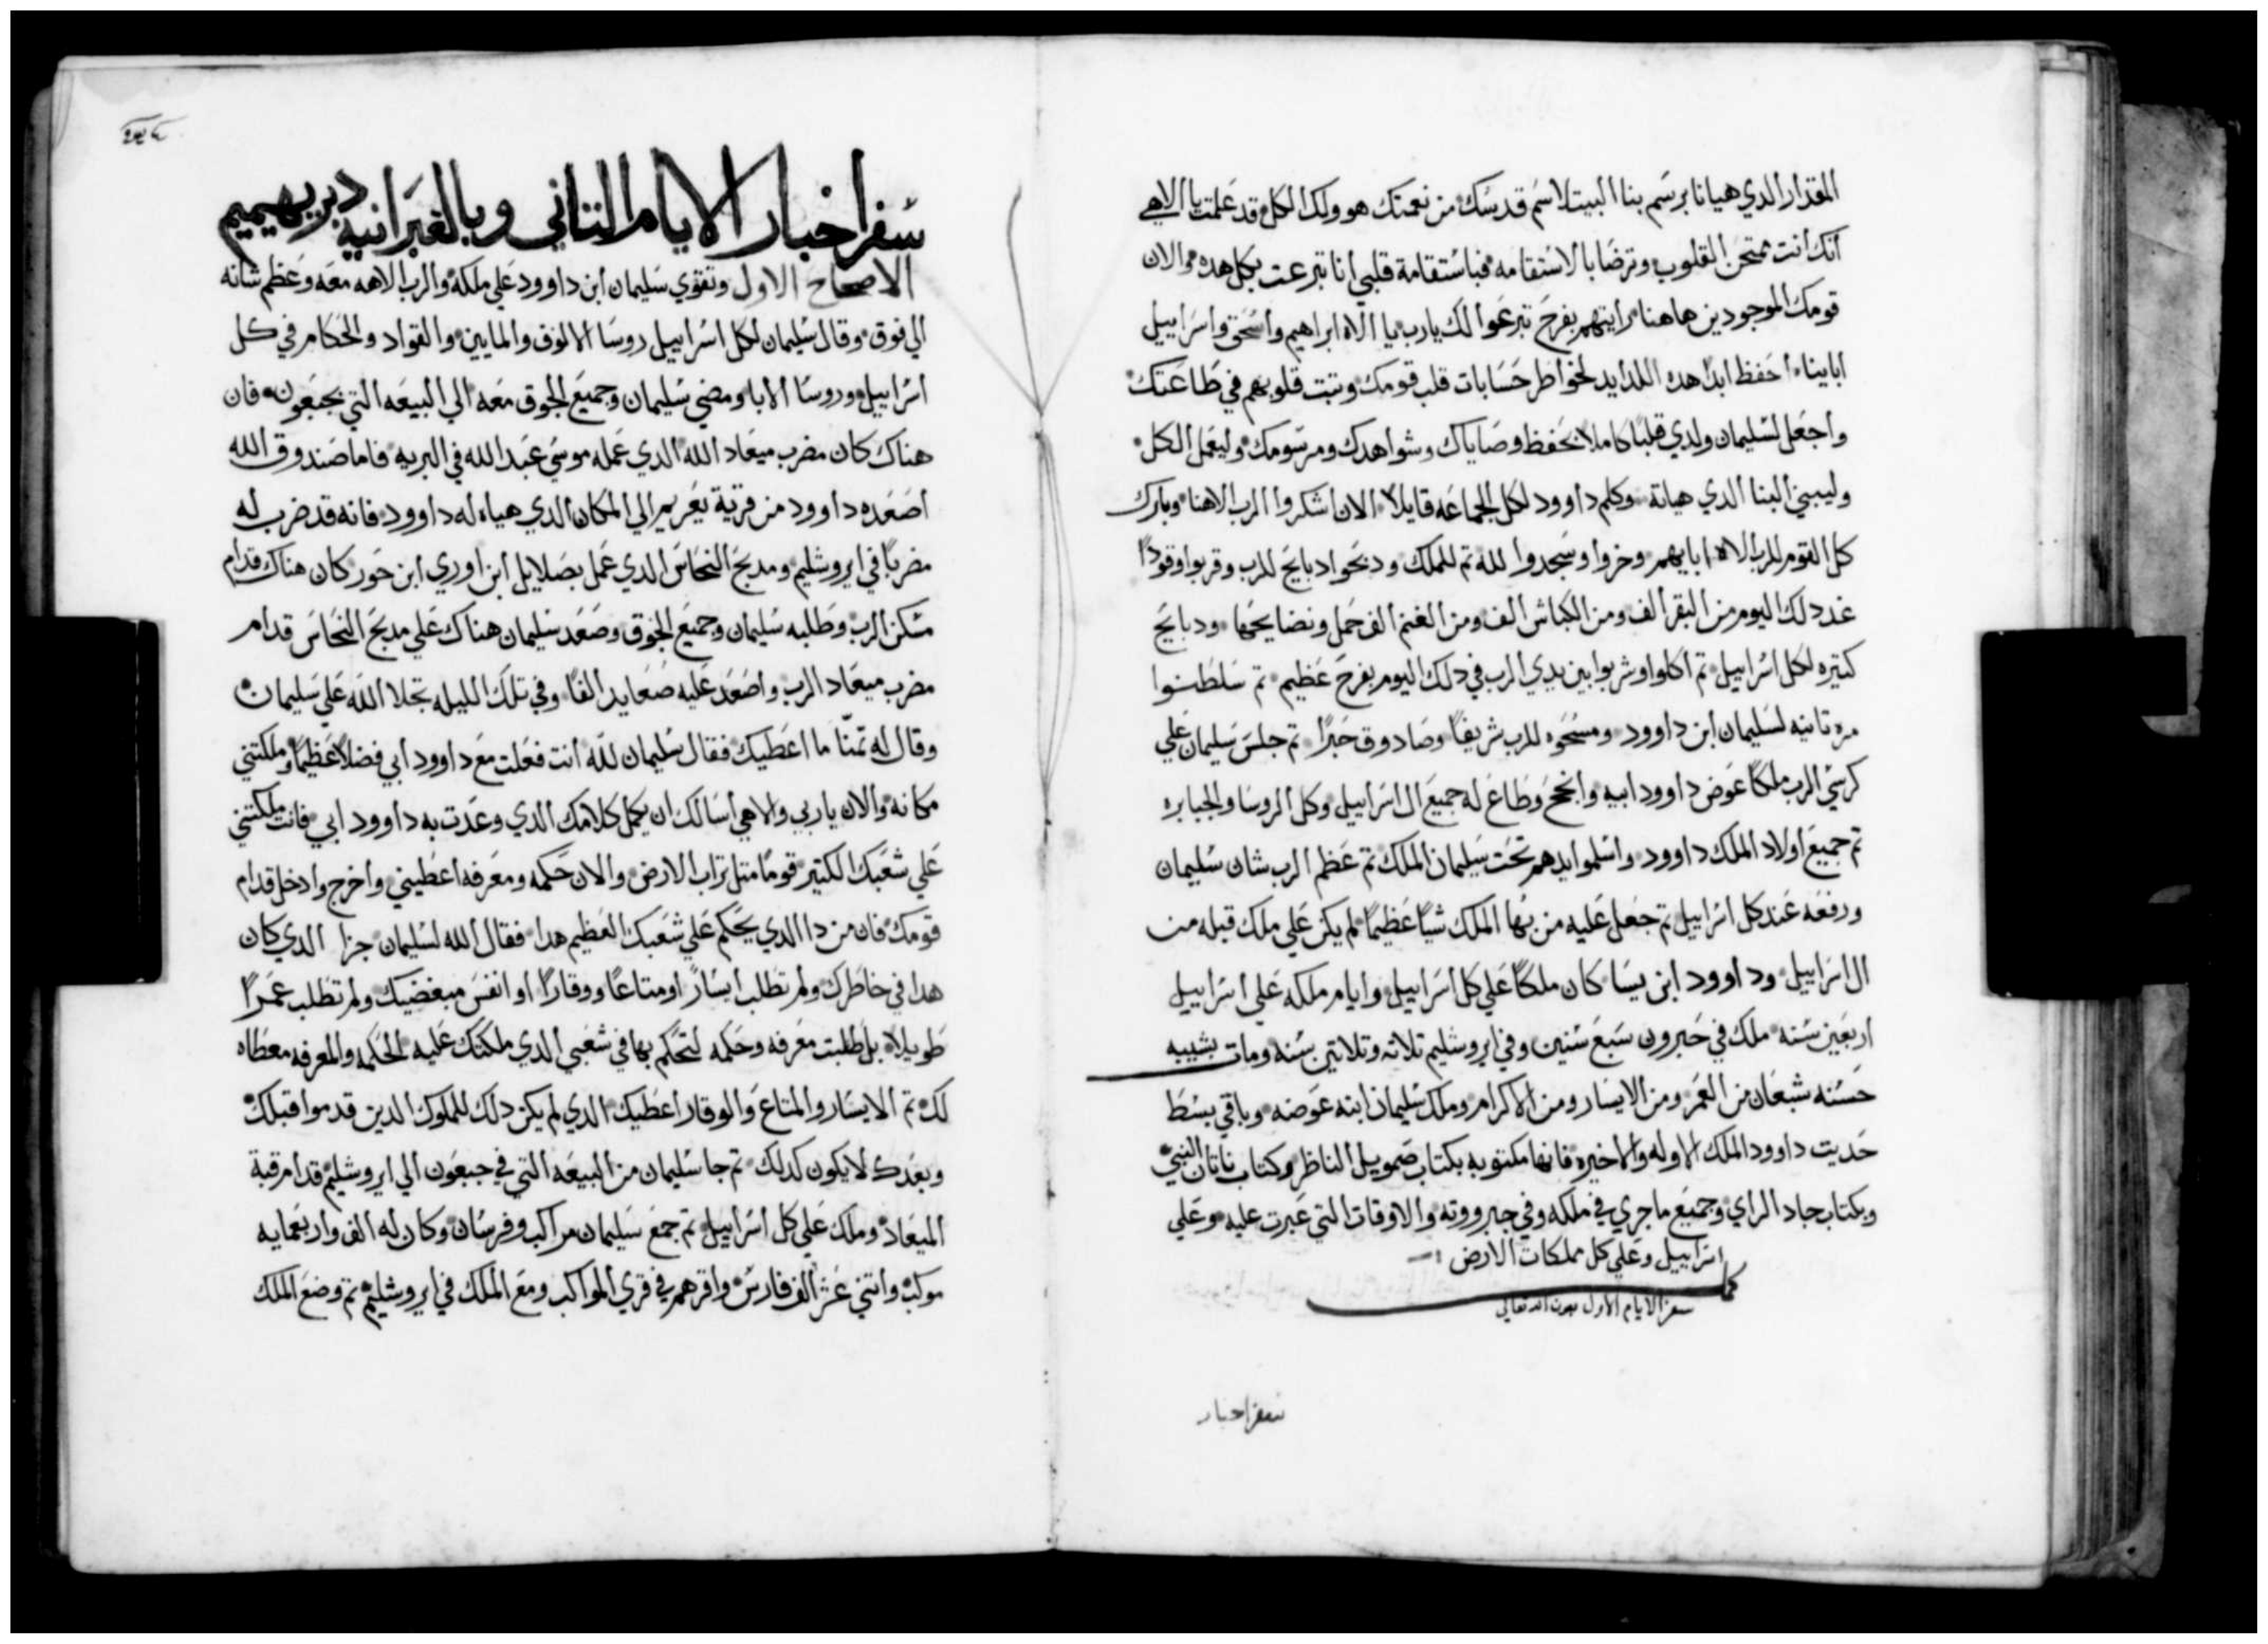 المقدار الدي هيانا برسم بنا البيت لاسم قدسك من نعمتك هو ولك الكل قد علمت يا الاهي
انك انت ممتحن القلوب وترضا بالاستقامه فباستقامة قلبي انا تبرعت بكل هده والان
قومك الموجودين هاهنا رايتهم بفرح تبرعوا لك يارب يا الاه ابراهيم واسحق واسراييل
اباينا احفظ ابدا هده اللدايد لخواطر حسابات قلب قومك وتبت قلوبهم في طاعتك
واجعل لسليمان ولدي قلبا كاملا بحفظ وصاياك وشواهدك ومرسومك وليعمل الكل
وليبني البنا الدي هياته وكلم داوود لكل الجماعه قايلا الان اشكروا الرب الاهنا وبارك
كل القوم للرب الاه ابايهم وخروا وسجدوا لله تم للملك ودبحوا دبايح للرب وقربوا وقودا
غد دلك اليوم من البقر الف ومن الكباش الف ومن الغنم الف حمل ونضايحها ودبايح
كتيره لكل اسراييل تم اكلوا وشربوا بين يدي الرب في دلك اليوم بفرح عظيم تم سلطنوا
مره تانيه لسليمان ابن داوود ومسحوه للرب شريفا وصادوق حبرا تم جلس سليمان علي
كرسي الرب ملكا عوض داوود ابيه وانجح وطاع له جميع ال اسراييل وكل الروسا والجبابره
تم جميع اولاد الملك داوود واسلموا ايدهم تحت سليمان الملك تم عظم الرب شان سليمان
ورفعه عند كل اسراييل تم جعل عليه من بها الملك شيا عظيما لم يكن علي ملك قبله من
ال اسراييل وداوود ابن يسا كان ملكا علي كل اسراييل وايام ملكه علي اسراييل
اربعين سنه ملك في حبرون سبع سنين وفي ايروشليم تلاته وتلاتين سنه ومات بشيبه
حسنه شبعان من العمر ومن الايسار ومن الاكرام وملك سليمان ابنه عوضه وباقي بسط
حديت داوود الملك الاوله والاخيره فانها مكتوبه بكتاب صمويل الناظر وكتاب ناتان النبي
وبكتاب جاد الراي وجميع ما جري في ملكه وفي جبرووته والاوقات التي عبرت عليه وعلي
اسراييل وعلي كل مملكات الارض
كمل
سفر الايام الاول بعون الله تعالي
سفر اخبار
سفر اخبار الايام التاني وبالعبرانيه دبريهيميم
الاصحاح الاول وتقوي سليمان ابن داوود علي ملكه والرب الاهه معه وعظم شانه
الي فوق وقال سليمان لكل اسراييل روسا الالوف والمايين والقواد والحكام في كل
اسراييل وروسا الابا ومضي سليمان وجميع الجوق معه الي البيعه التي بجبعون فان
هناك كان مضرب ميعاد الله الدي عمله موسي عبد الله في البريه فاما صندوق الله
اصعده داوود من قرية يعريم الي المكان الدي هياه له داوود فانه قد ضرب له
مضربا في ايروشليم ومدبح النحاس الدي عمل بصلايل ابن اوري ابن حور كان هناك قدام
مسكن الرب وطلبه سليمان وجميع الجوق وصعد سليمان هناك علي مدبح النحاس قدام
مضرب ميعاد الرب واصعد عليه صعايد الفا وفي تلك الليله تجلا الله علي سليمان
وقال له تمنا ما اعطيك فقال سليمان لله انت فعلت مع داوود ابي فضلا عظيما وملكتني
مكانه والان ياربي والاهي اسالك ان يكمل كلامك الدي وعدت به داوود ابي فانت ملكتني
علي شعبك الكتير قوما متل تراب الارض والان حكمه ومعرفه اعطيني واخرج وادخل قدام
قومك فان من دا الدي يحكم علي شعبك العظيم هدا فقال الله لسليمان جزا الدي كان
هدا في خاطرك ولم تطلب ايسارا ومتاعا ووقارا او انفس مبغضيك ولم تطلب عمرا
طويلا بل طلبت معرفه وحكمه لتحكم بها في شعبي الدي ملكتك عليه الحكمه والمعرفه معطاه
لك تم الايسار والمتاع والوقار اعطيك الدي لم يكن دلك للملوك الدين قدموا قبلك
وبعدك لا يكون كدلك تم جا سليمان من البيعه التي في جبعون الي ايروشليم قدام قبة
الميعاد وملك علي كل اسراييل تم جمع سليمان مراكب وفرسان وكان له الف واربعمايه
موكب واتني عشر الف فارس واقرهم في قري المواكب ومع الملك في ايروشليم تم وضع الملك